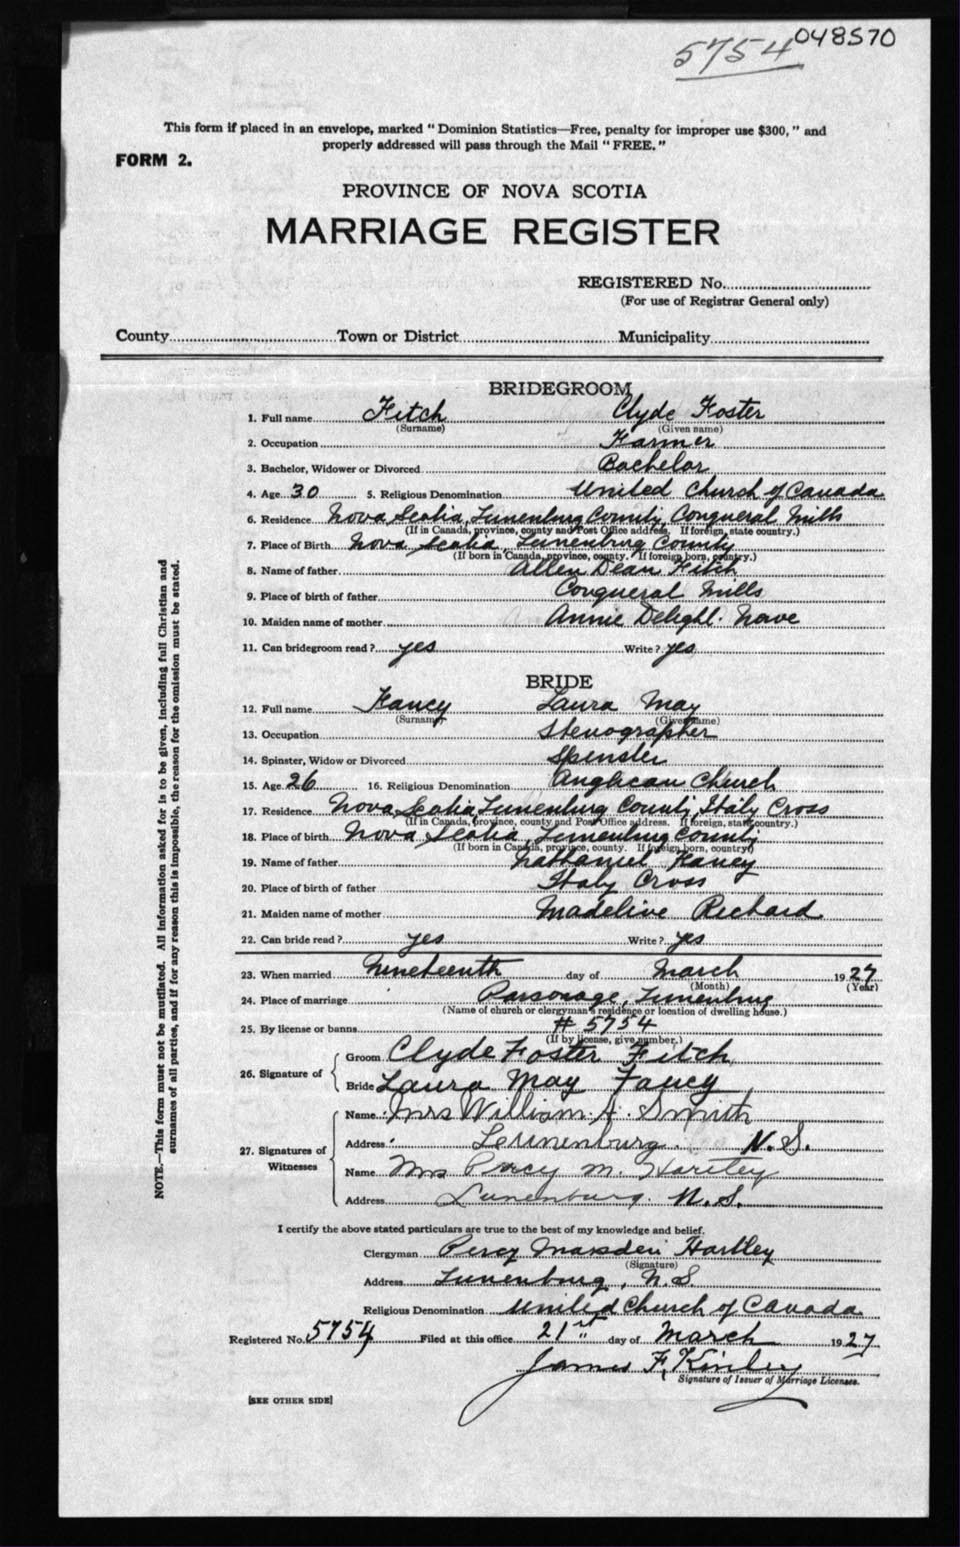 5754 048570
This form if placed in an envelope, marked "Dominion Statistics—Free, penalty for improper use $300," and
properly addressed will pass through the Mail "FREE."
FORM 2.
PROVINCE OF NOVA SCOTIA
MARRIAGE REGISTER
REGISTERED No.
(For use of Registrar General only)
County Town or District Municipality
BRIDEGROOM
1. Full name Fitch Clyde Foster
(Surname) (Given name)
2. Occupation Farmer
3. Bachelor, Widower or Divorced Bachelor
4. Age 30 5. Religious Denomination United Church of Canada
6. Residence Nova Scotia, Lunenburg County, Conqueral Mills
(If in Canada, province, county and Post Office address. If foreign, state country.)
7. Place of Birth Nova Scotia, Lunenburg County
(If born in Canada, province, county. If foreign born, country.)
8. Name of father Allen Dean Fitch
9. Place of birth of father Conqueral Mills
10. Maiden name of mother Annie Delight Nowe
11. Can bridegroom read? yes Write? yes
BRIDE
12. Full name Fancy Laura May
(Surname) (Given name)
13. Occupation Stenographer
14. Spinster, Widow or Divorced Spinster
15. Age 26 16. Religious Denomination Anglican Church
17. Residence Nova Scotia, Lunenburg County, Italy Cross
(If in Canada, province, county and Post Office address. If foreign, state country.)
18. Place of birth Nova Scotia, Lunenburg County
(If born in Canada, province, county. If foreign born, country)
19. Name of father Nathaniel Fancy
20. Place of birth of father Italy Cross
21. Maiden name of mother Madeline Richard
22. Can bride read? yes Write? yes
23. When married Nineteenth day of March 1927
(Month) (Year)
24. Place of marriage Parsonage, Lunenburg
(Name of church or clergyman's residence or location of dwelling house.)
25. By license or banns # 5754
(If by license, give number.)
26. Signature of Groom Clyde Foster Fitch
Bride Laura May Fancy
27. Signatures of Witnesses Name Mrs William A. Smith
Address Lunenburg. N.S.
Name Mrs Percy M. Hartley
Address Lunenburg. N.S.
I certify the above stated particulars are true to the best of my knowledge and belief.
Clergyman Percy Marsden Hartley
(Signature)
Address Lunenburg, N.S.
Religious Denomination United Church of Canada
Registered No. 5754 Filed at this office 21st day of March 1927
James F. Kinley
Signature of Issuer of Marriage Licenses.
[SEE OTHER SIDE]
NOTE.—This form must not be mutilated. All information asked for is to be given, including full Christian and
surnames of all parties, and if for any reason this is impossible, the reason for the omission must be stated.